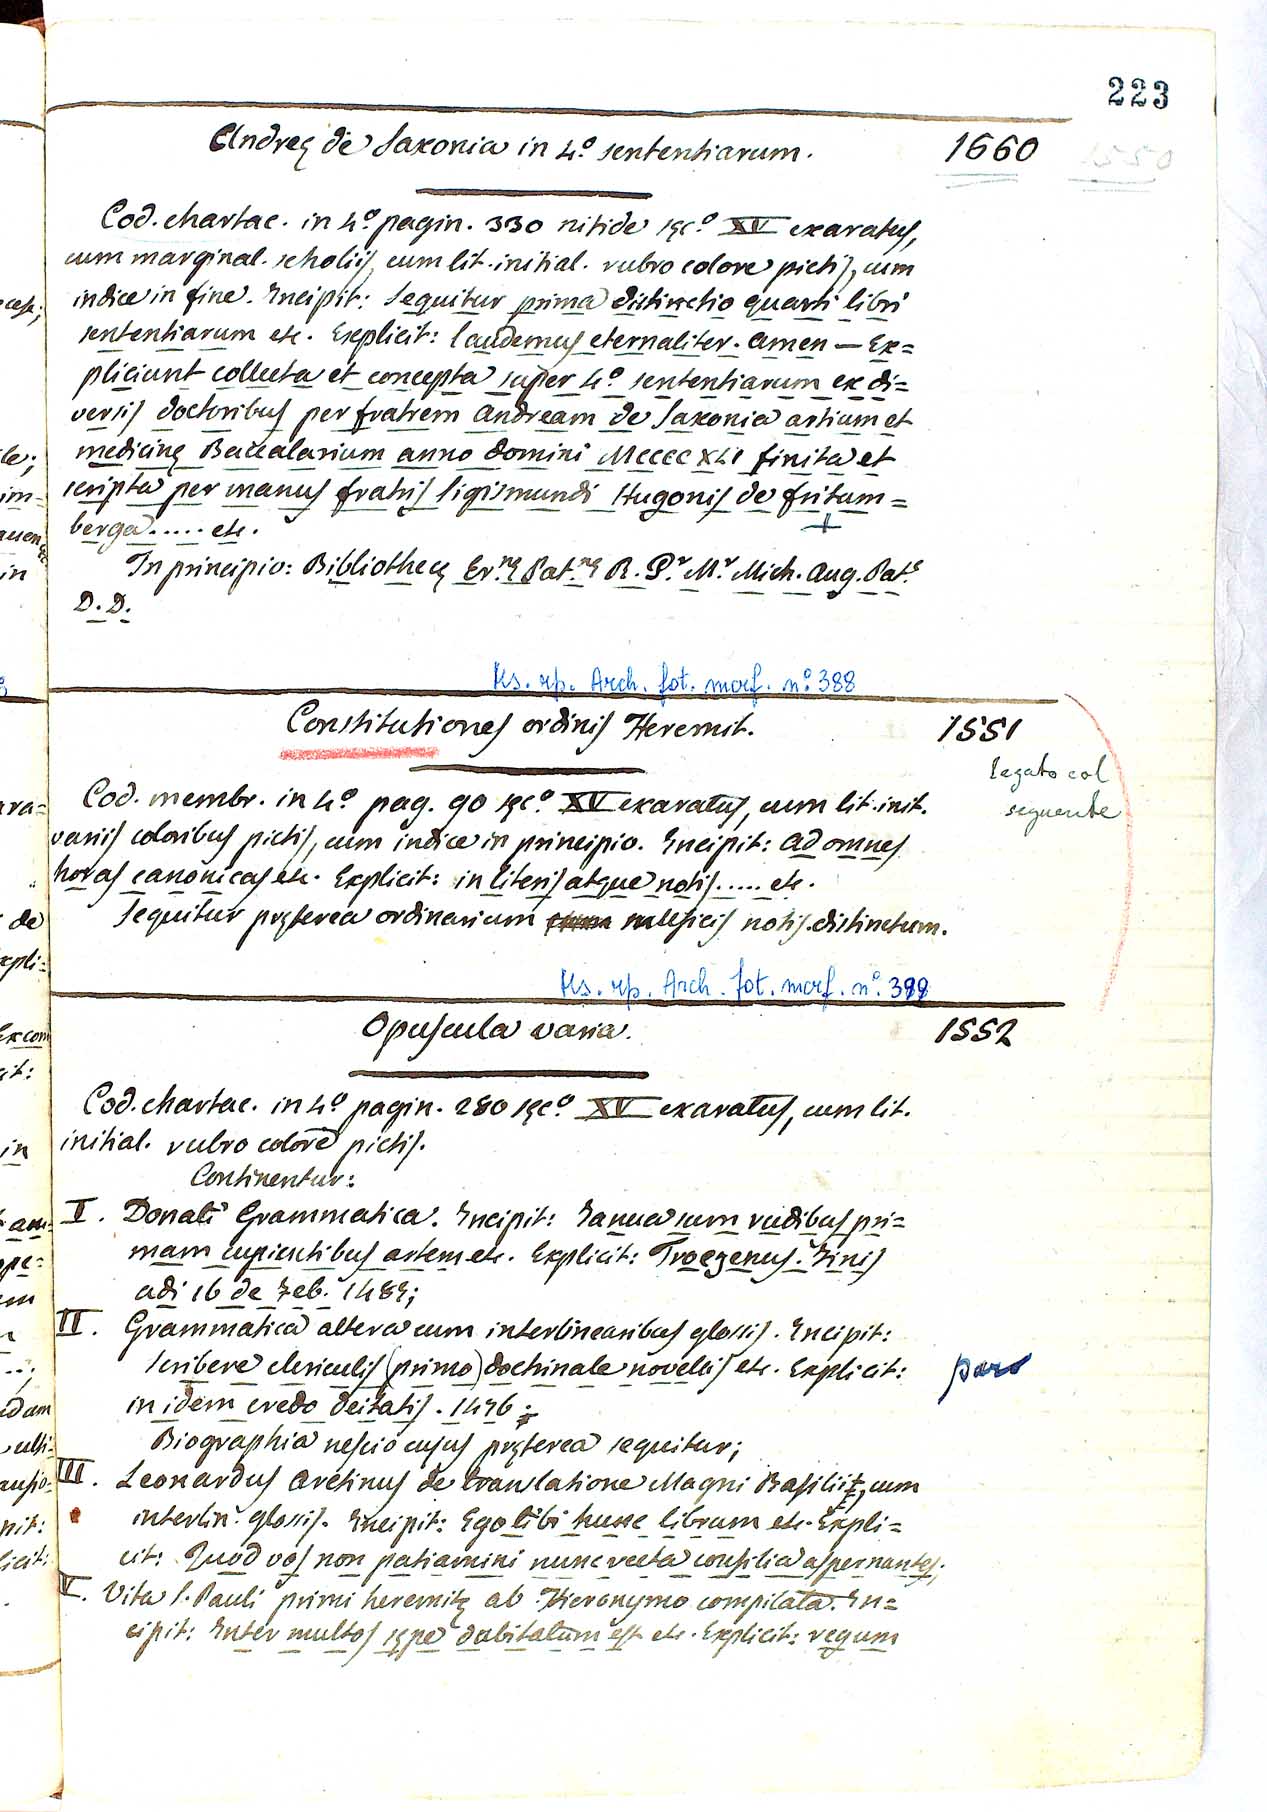 223
Andreę de Saxonia in 4.º sententiarum.
1660
1550
Cod. chartac. in 4.º pagin. 330 nitide sęc.º XV exaratus,
cum marginal. scholiis, cum lit. initial. rubro colore pictis, cum
indice in fine. Incipit: Sequitur prima distinctio quarti libri
sententiarum etc. Explicit: laudemus eternaliter. Amen — Ex=
pliciunt collecta et concepta super 4.º sententiarum ex di=
versis doctoribus per fratrem Andream de Saxonia artium et
medicinę Baccalarium anno domini MCCCCXLI finita et
scripta per manus fratris Sigismundi Hugonis de fritum=
berga..... etc.
In principio: Bibliothecę Er.nę Pat.nę R. P.r M.r Mich. Aug. Pat.s
D. D.
Ks. rp. Arch. fot. morf. nº. 388
Constitutiones ordinis Heremit.
1551
legato col
seguente
Cod. membr. in 4.º pag. 90 sęc.º XV exaratus, cum lit. init.
variis coloribus pictis, cum indice in principio. Incipit: Ad omnes
horas canonicas etc. Explicit: in literis atque notis..... etc.
Sequitur pręterea ordinarium musicis notis distinctum.
Ks. rp. Arch. fot. morf. nº. 388
Opuscula varia.
1552
Cod. chartac. in 4.º pagin. 280 sęc.º XV exaratus, cum lit.
initial. rubro colore pictis.
Continentur:
I. Donati Grammatica. Incipit: Ianua sum rudibus pri=
mam cupientibus artem etc. Explicit: Troezenus. Finis
adi 16 de Feb. 1483;
II. Grammatica altera cum interlinearibus glossis. Incipit:
scribere clericulis (primo) doctrinale novellis etc. Explicit:
in idem credo deitatis. 1476;
Biographia nescio cujus pręterea sequitur;
III. Leonardus Aretinus de translatione Magni Basilii, cum
interlin. glossis. Incipit: Ego tibi hunc librum etc. Expli=
cit: Quod vos non patiamini nunc recta consilia aspernantes;
V. Vita S. Pauli primi heremitę ab Hieronymo compilata. In=
cipit: Inter multos sępe dubitatum est etc. Explicit: regum